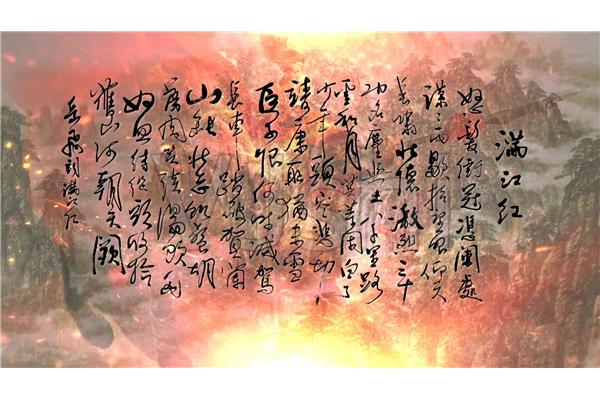 滿江红
怒髮衝冠憑闌處
瀟瀟雨歇抬望眼仰天
長嘯壯懷激烈三十
功名塵與土八千里路
雲和月莫等閒白了
少年頭空悲切
靖康恥猶未雪
臣子恨何時滅駕
長車踏破賀蘭
山缺壯志飢餐胡
虜肉笑談渴飲匈
奴血待從頭收拾
舊山河朝天闕
岳飛詞滿江红